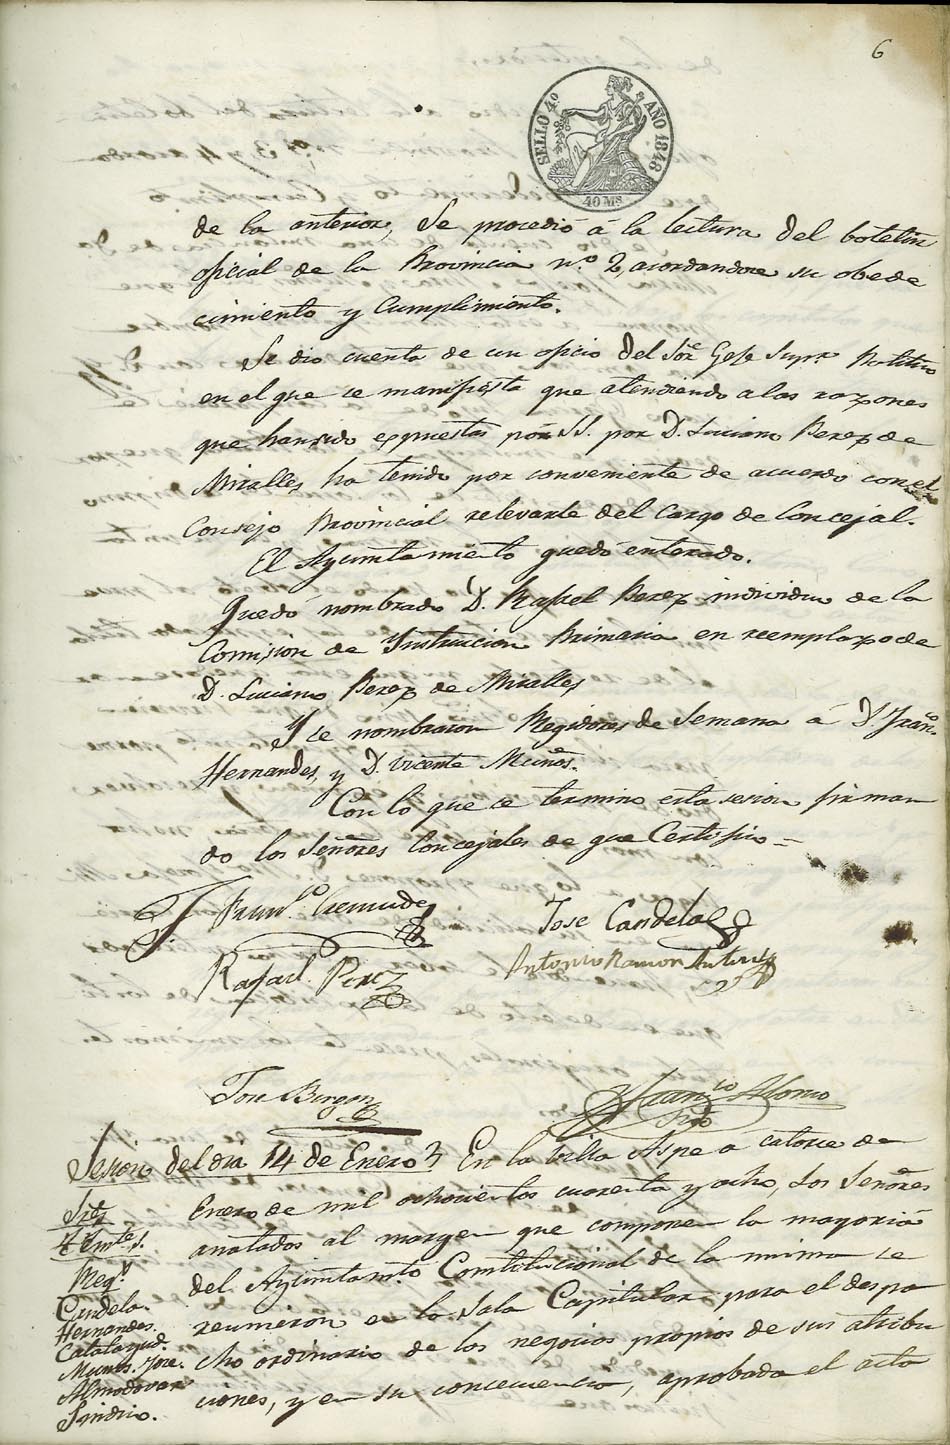 6
SELLO 4º AÑO 1848
40 Ms
de la anterior, Se procedió á la lectura del boletin
oficial de la Provincia n.º 2, acordandose su obede
cimiento y Cumplimiento.
Se dio cuenta de un oficio del Sor Gefe Supr Politico
en el que se manifiesta que atendiendo a las razones
que han sido espuestas por SS. por D. Luciano Perez de
Miralles, ha tenido por conveniente de acuerdo con el
Consejo Provincial relevarle del Cargo de Concejal.
El Ayuntamiento quedó enterado.
Quedó nombrado D. Rafael Perez individuo de la
Comision de Ynstruccion Primaria en reemplazo de
D. Luciano Perez de Miralles
Y se nombraron Regidores de Semana á Dn Franco
Hernandes, y D. Vicente Muños.
Con lo que se termino esta sesion firman
do los Señores Concejales de que Certifico =
Jose Candela
Rafael Perez
Antonio Ramon
Jose
Franco Alonso
Srio
Sesion del dia 14 de Enero } En la villa Aspe a catorce de
Sres Enero de mil ochocientos cuarenta y ocho, Los Señores
anotados al margen que componen la mayoria
del Ayuntamto Constitucional de la misma se
Candela. reunieron en la Sala Capitular para el despa
Hernandes.
Catalayud. cho ordinario de los negocios propios de sus atribu
Munos. Jose.
Almodovar ciones, y en su concecuencia, aprobada el acta
Sindico.